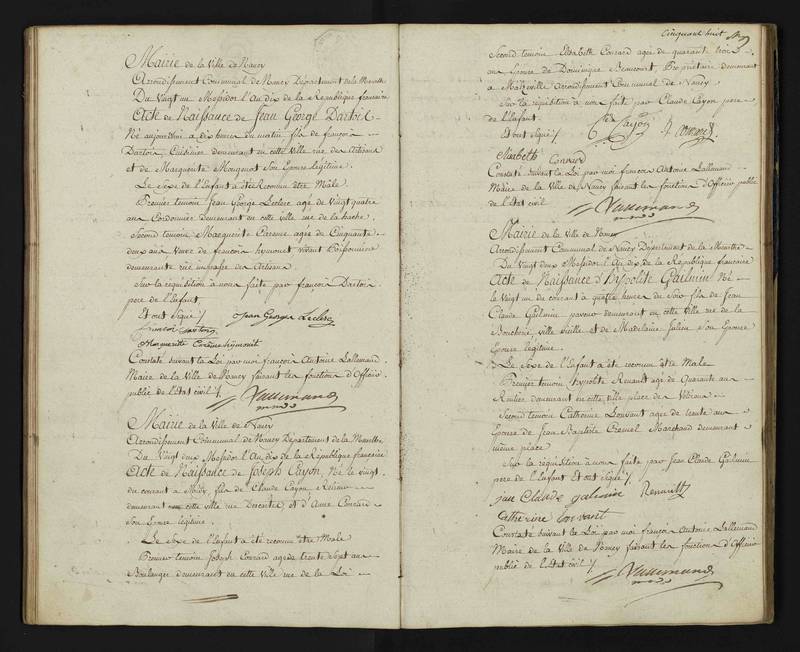 Mairie de la Ville de Nancy
Arrondissement Communal de Nancy Departement de la Meurthe
Du Vingt un Messidor l'An dix de la République française
Acte de Naissance de Jean George Dartois
Né aujourdhui a dix heures du matin fils de françois
Dartois Cuisinier demeurant en cette Ville rue des Artisans
et de Marguerite Mougenot Son Epouse légitime.
Le Sexe de l'Enfant a été Reconnu être Male.
Premier temoin Jean George Leclerc agé de Vingt quatre
ans Cordonnier demeurant en cette ville rue de la hache.
Second temoin Marguerite Carême agée de Cinquante
deux ans Veuve de françois hymonet
demeurante rue des Artisans
Sur la requisition à nous faite par françois Dartois
pere de l'Enfant,
Et ont Signé /. Jean George Leclerc
françois Dartois
Marguerite Carême hymonet
Constaté suivant la Loi par moi françois Antoine Lallemand
Maire de la Ville de Nancy faisant les fonctions d'Officier
public de l'Etat civil /. Lallemand
Mairie de la Ville de Nancy
Arrondissement Communal de Nancy Departement de la Meurthe
Du Vingt deux Messidor l'An dix de la République française
Acte de Naissance de Joseph Cayon, Né le vingt
du courant à Midy, fils de Claude Cayon Relieur
demeurant en cette ville rue et d'Anne Conrard
Son Epouse légitime.
Le Sexe de l'Enfant a été reconnu être Male
Premier temoin Joseph Conrard agé de trente sept ans
Boulanger demeurant en cette Ville rue de la Loi
Cinquante huit
Second temoin Elisabeth Conrard agée de quarante trois
ans Epouse de Dominique Beaucourt Propriétaire demeurant
à Maxeville Arrondissement Communal de Nancy
Sur la requisition à nous faite par Claude Cayon pere
de l'Enfant.
Et ont Signé /. Cde Cayon J. Conrard
Elisabeth Conrard
Constaté suivant la Loi par moi françois Antoine Lallemand
Maire de la Ville de Nancy faisant les fonctions d'Officier public
de l'Etat civil Lallemand
Mairie de la Ville de Nancy
Arrondissement Communal de Nancy Departement de la Meurthe
Du Vingt deux Messidor l'An dix de la République française
Acte de Naissance d'hypolite Gailmin Né
le Vingt un du courant à quatre heures du Soir fils de Jean
Claude Gailmin paveur demeurant en cette Ville rue de la
Boucherie, ville vieille et de Madelaine Julien Son Epouse
Epouse légitime.
Le Sexe de l'Enfant a été reconnu être Male
Premier temoin hypolite Renault agé de Quarante ans
Rentier demeurant en cette ville place des Vétérans
Second temoin Catherine Louvant agée de trente ans
Epouse de Jean Baptiste Marchand demeurant
même place
Sur la requisition à nous faite par Jean Claude Gailmin
pere de l'Enfant Et ont Signé /.
jean Claude galmine Renault
catherine Louvant
Constaté suivant la Loi par moi françois Antoine Lallemand
Maire de la Ville de Nancy faisant les fonctions d'Officier
public de l'Etat civil /. Lallemand